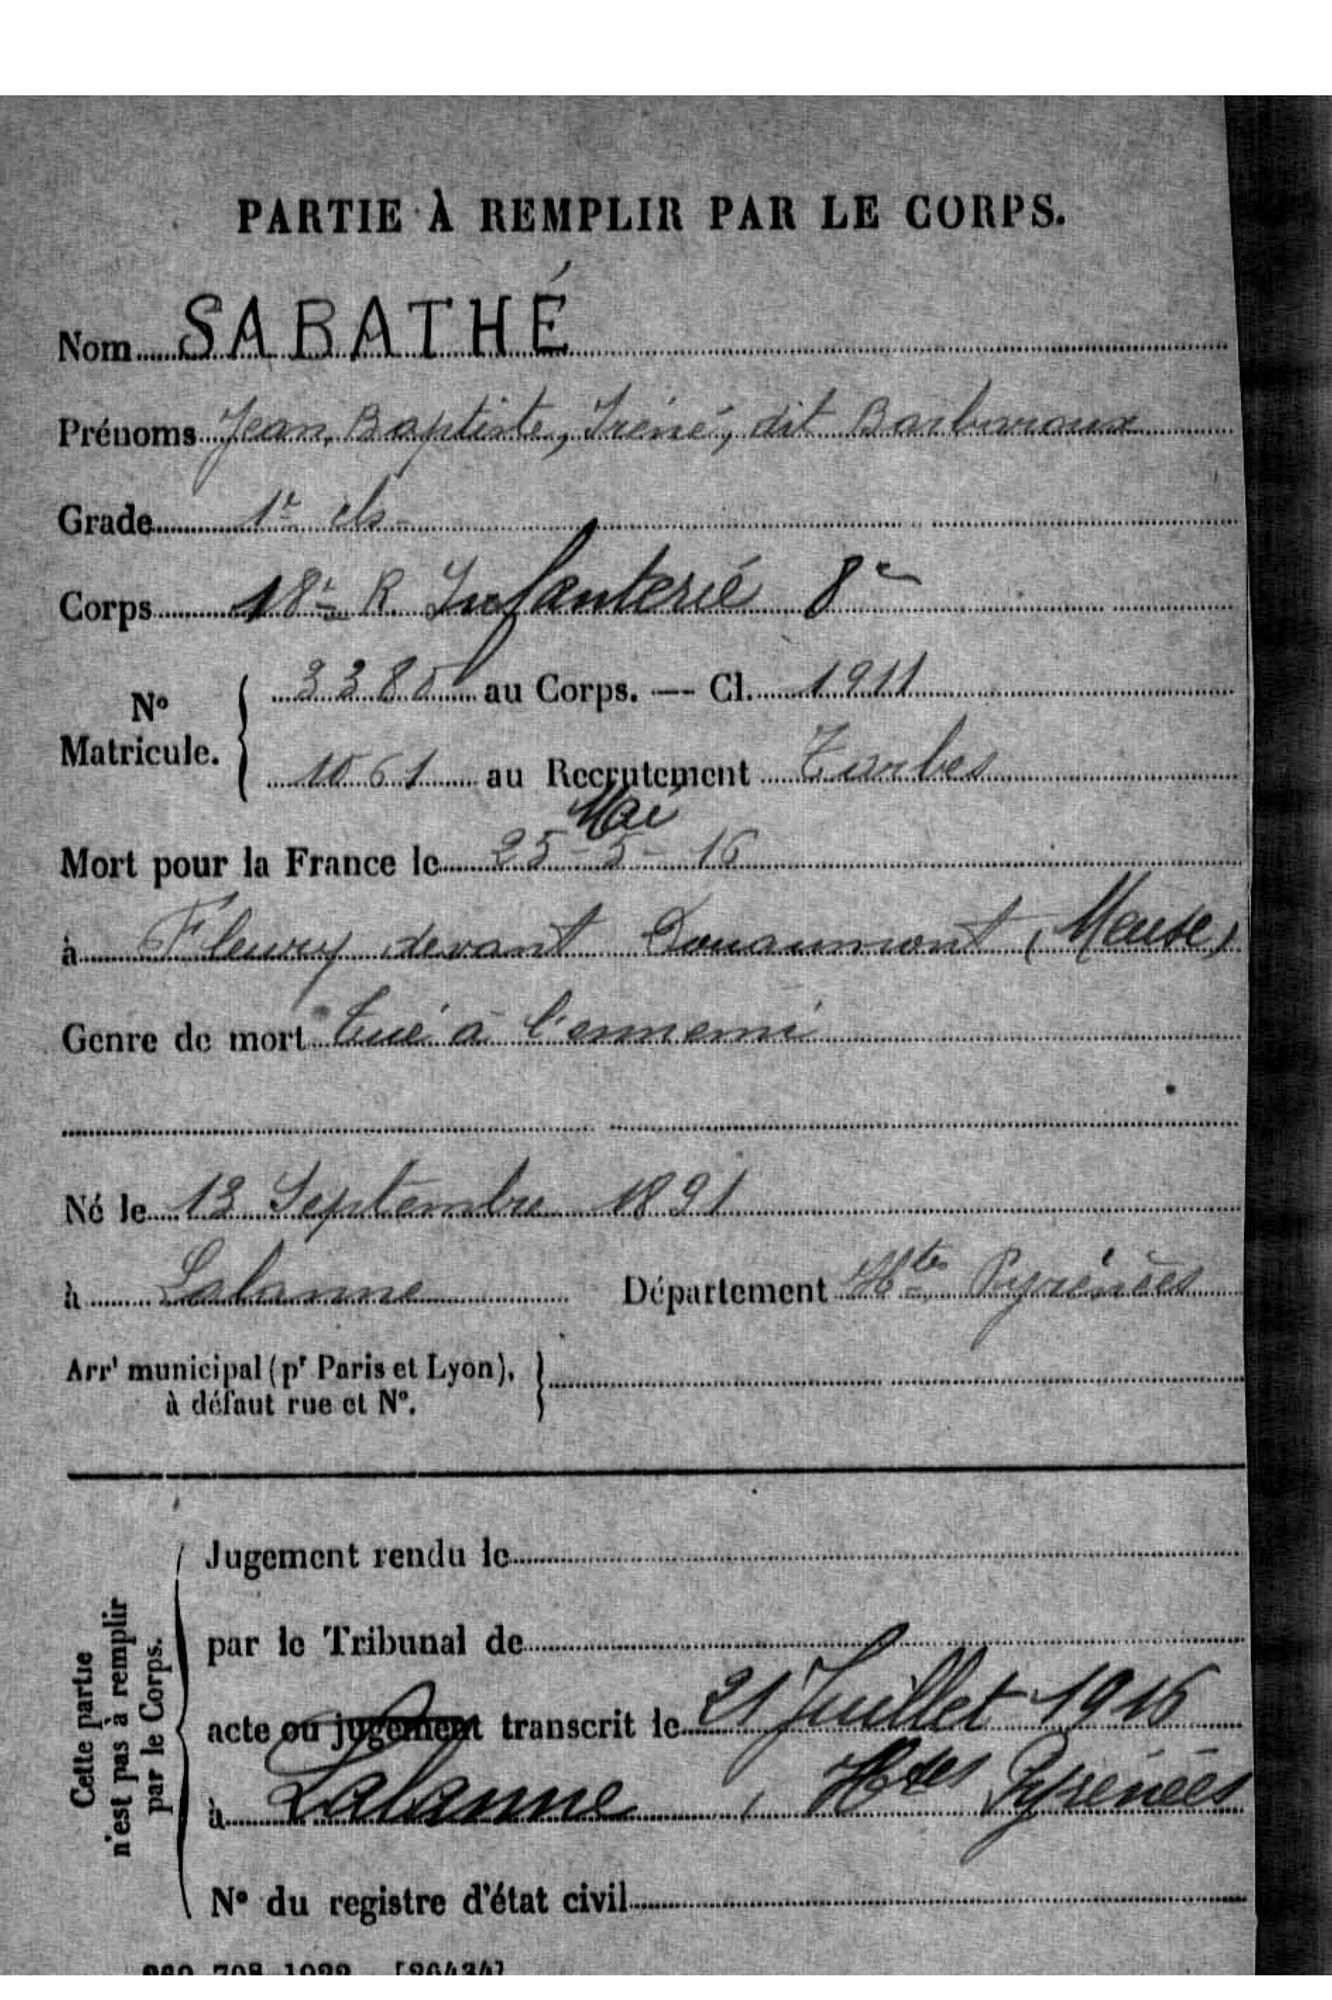 PARTIE À REMPLIR PAR LE CORPS.
Nom SABATHÉ
Prénoms Jean, Baptiste, Iréné, dit Barbarroux
Grade 1e cls
Corps 18e R. Infanterie 8e
No Matricule. { 3380 au Corps. — Cl. 1911
1061 au Recrutement Tarbes
Mai
Mort pour la France le 25-5-16
à Fleury devant Douaumont (Meuse)
Genre de mort tué à l'ennemi
Né le 13 Septembre 1891
à Lalanne Département Htes Pyrénées
Arrt municipal (pr Paris et Lyon),
à défaut rue et No.
Cette partie
n'est pas à remplir
par le Corps.
Jugement rendu le
par le Tribunal de
acte ou jugement transcrit le 21 Juillet 1916
à Lalanne, Htes Pyrénées
No du registre d'état civil
708 1922 [26434]